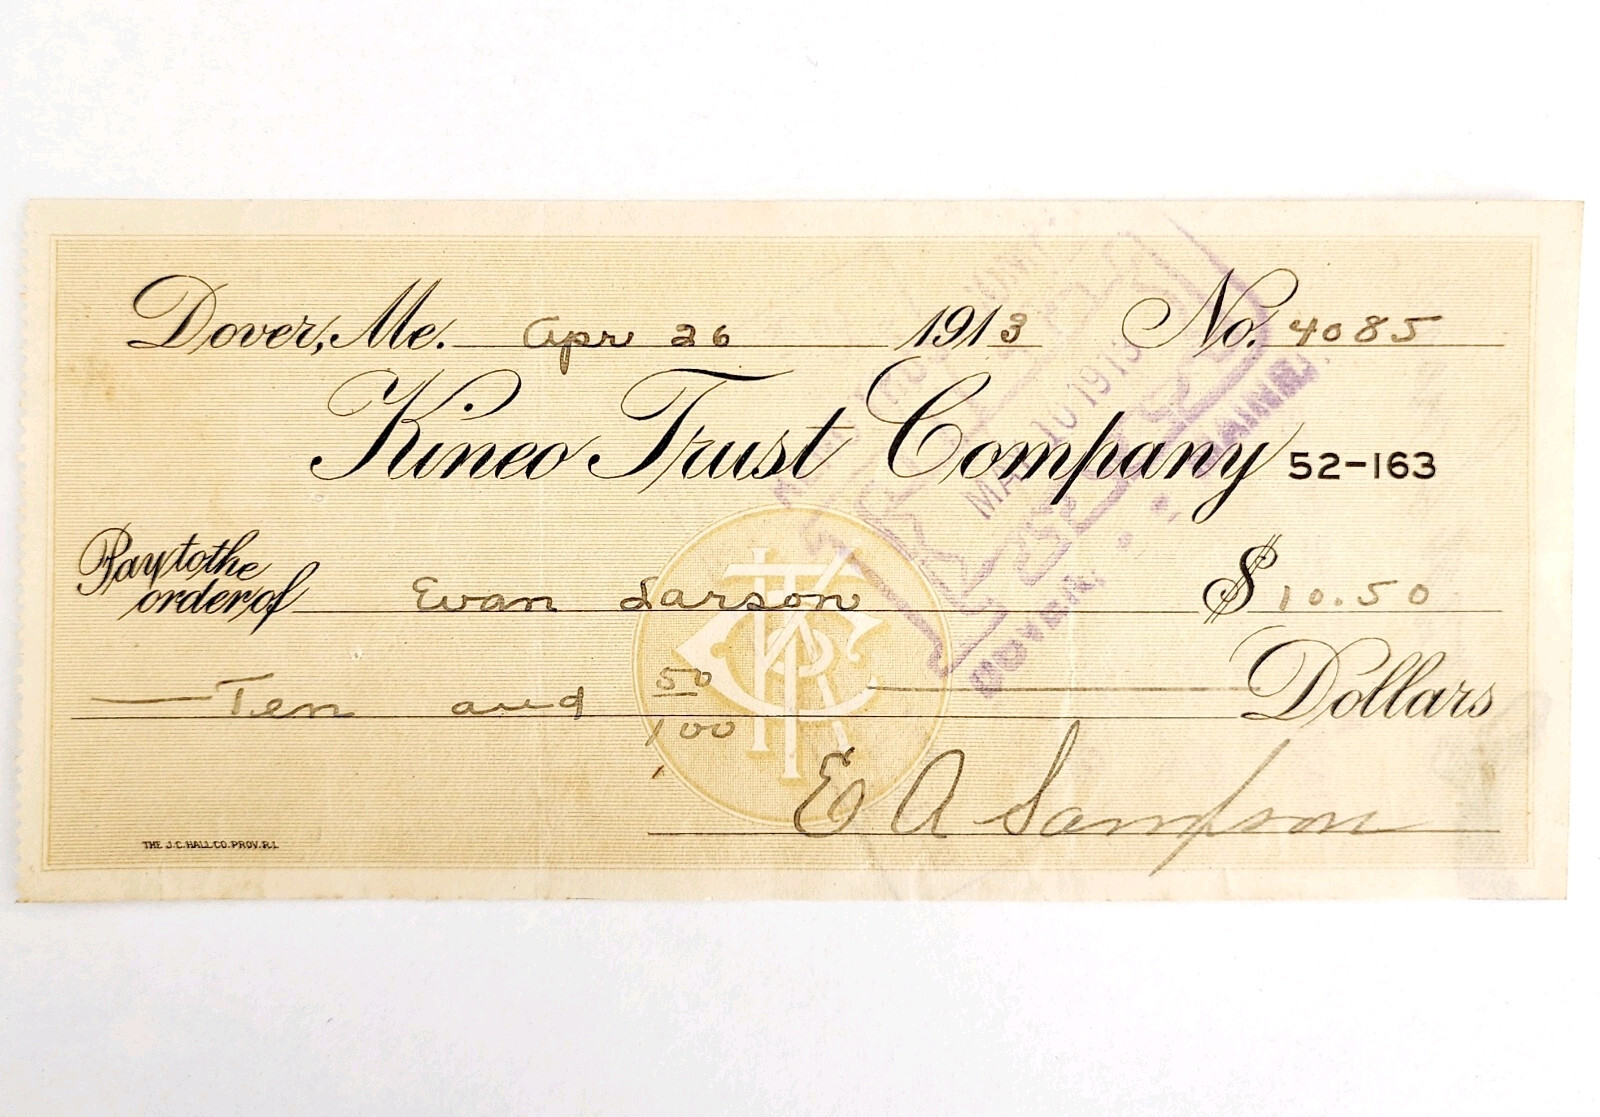 Dover, Me. Apr 26 1913 No. 4085
Kineo Trust Company 52-163
Pay to the order of Evan Larson $10.50
Ten and 50/100 Dollars
E A Sampson
THE J.C. HALL CO. PROV. R.I.
KTC
PAID
MAY 10 1913
DOVER, MAINE.